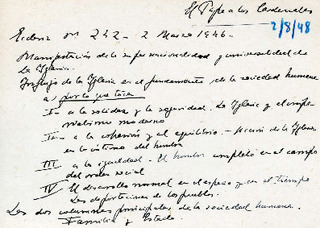 El Papa a los Cardenales
2/8/48
Ecclesia nº 242 - 2 Marzo 1946-
Manifestación de la supranacionalidad y universalidad de
La Iglesia.
Influjo de la Iglesia en el fundamento de la sociedad humana
a) por lo que toca
I- a la solidez y la seguridad. La Iglesia y el impe-
rialismo moderno
II- a la cohesión y al equilibrio. - Acción de la Iglesia
en lo íntimo del hombre
III a la igualdad. El hombre completo en el campo
del orden social
IV El desarrollo normal en el espacio y en el tiempo
Las deportaciones de los pueblos.
Las dos columnas principales de la sociedad humana.
Familia y Estado